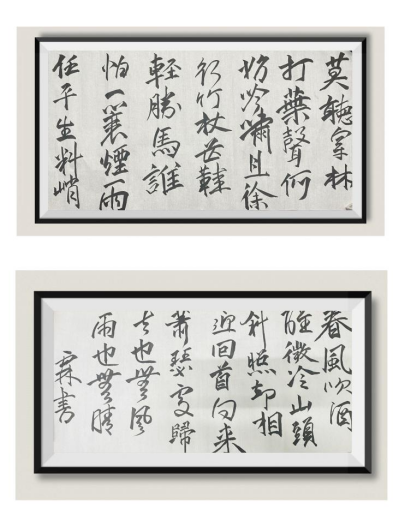 莫聽穿林
打葉聲何
妨吟嘯且徐
行竹杖芒鞋
軽勝馬誰
怕一蓑煙雨
任平生料峭
春風吹酒
醒微冷山頭
斜照却相
迎回首向来
蕭瑟處歸
去也無風
雨也無晴
霖書